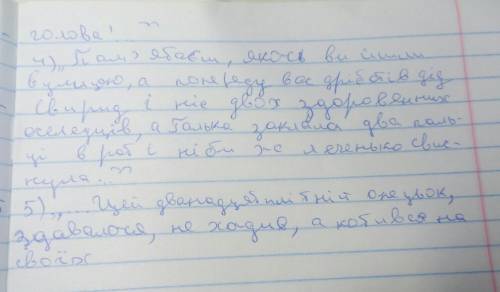 голова! "
4) „Пам'ятаєш, якось ви йшли
вулицею, а попереду вас дріботів дід
Свирид і ніс двох здоровенних
оселедців, а Галька заклала два паль-
ці в рот і ніби легенько свис-
нула..."
5) „... Цей дванадцятилітній опецьок,
здавалося, не ходив, а котився на
своїх